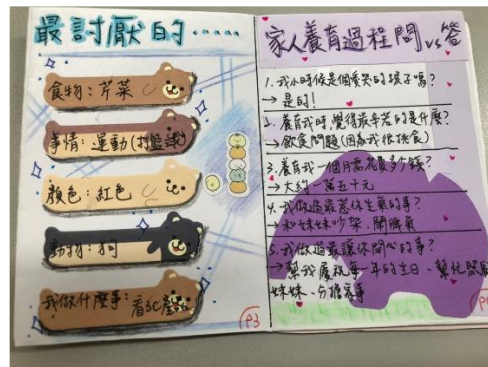 最討厭的.....
食物：芹菜
事情：運動(打籃球)
顏色：紅色
動物：狗
我做什麼事：看3C產品
P3
家人養育過程問vs答
1.我小時候是個愛哭的孩子嗎？
→是的！
2.養育我時,覺得最辛苦的是什麼？
→飲食問題(因為我很挑食)
3.養育我一個月需花費多少錢？
→大約一萬五千元
4.我做過最惹你生氣的事？
→和妹妹吵架、鬧脾氣
5.我做過最讓你開心的事？
→幫我慶祝每一年的生日、幫忙照顧
妹妹、分擔家事